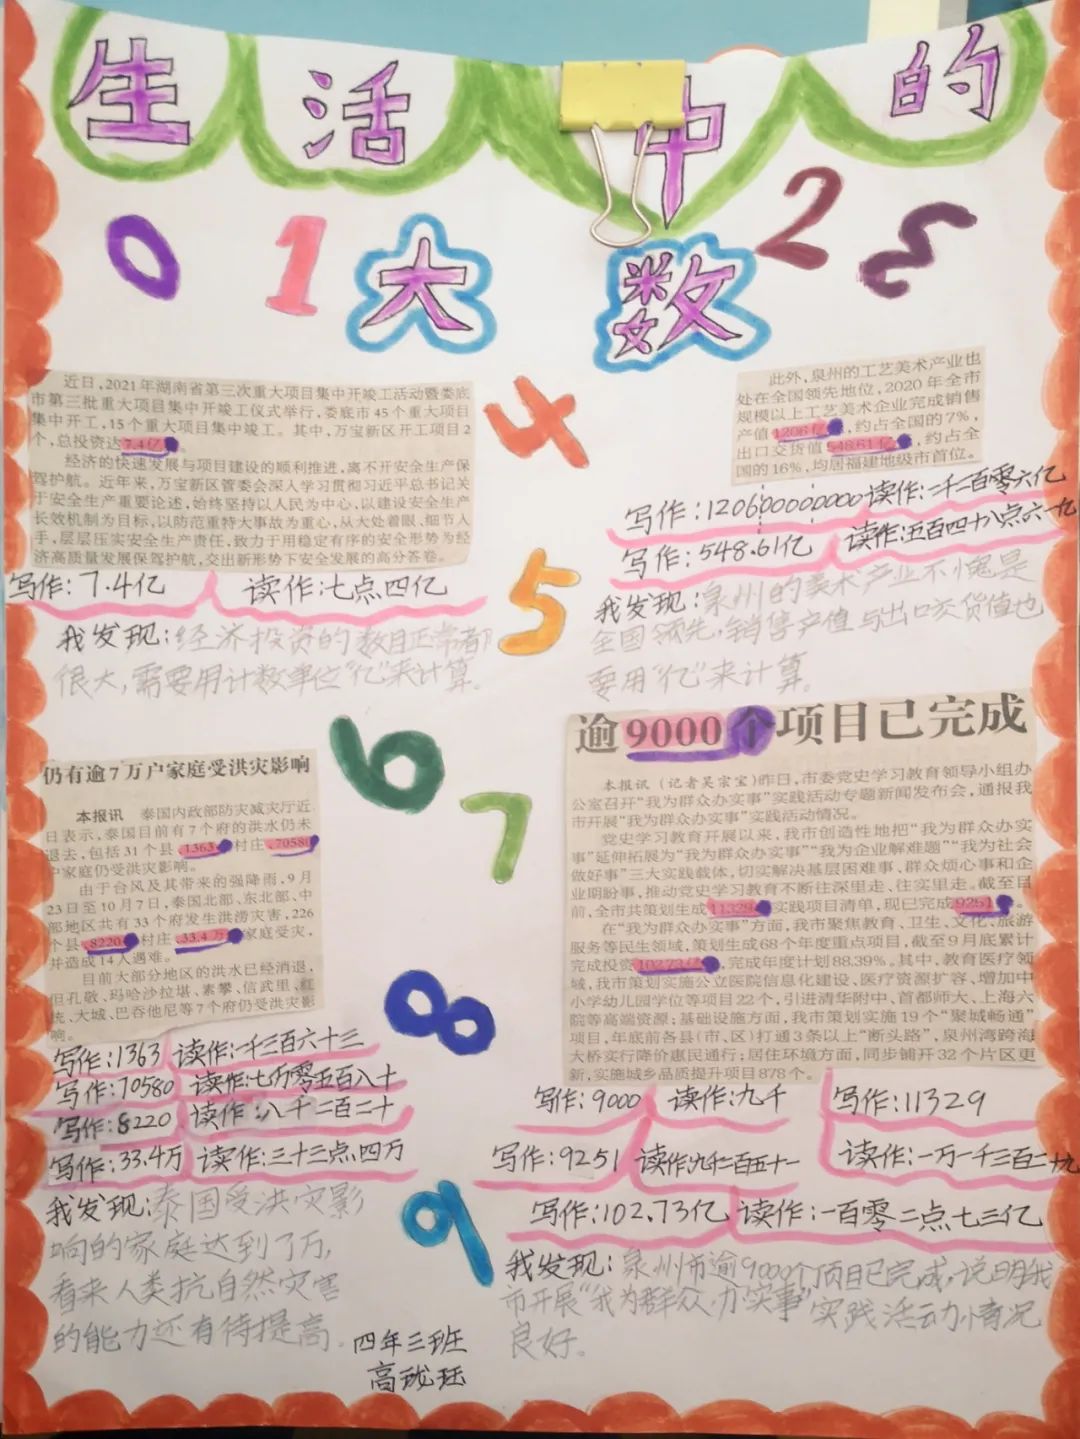 生活中的
0 1 大数 2 3
近日，2021年湖南省第三次重大项目集中开竣工活动暨娄底
市第三批重大项目集中开竣工仪式举行，娄底市45个重大项目
集中开工，15个重大项目集中竣工。其中，万宝新区开工项目2
个，总投资达7.4亿
经济的快速发展与项目建设的顺利推进，离不开安全生产保
驾护航。近年来，万宝新区管委会深入学习贯彻习近平总书记关
于安全生产重要论述，始终坚持以人民为中心，以建设安全生产
长效机制为目标，以防范重特大事故为重心，从大处着眼，细节入
手，层层压实安全生产责任，致力于用稳定有序的安全形势为经
济高质量发展保驾护航，交出新形势下安全发展的高分答卷。
写作：7.4亿 读作：七点四亿
我发现：经济投资的数目正常都
很大，需要用计数单位“亿”来计算。
4
5
此外，泉州的工艺美术产业也
处在全国领先地位，2020年全市
规模以上工艺美术企业完成销售
产值1206亿，约占全国的7%，
出口交货值548.61亿，约占全
国的16%，均居福建地级市首位。
写作：120600000000读作：一千二百零六亿
写作：548.61亿 读作：五百四十八点六一亿
我发现：泉州的美术产业不愧是
全国领先，销售产值与出口交货值也
要用“亿”来计算。
6
7
仍有逾7万户家庭受洪灾影响
本报讯 泰国内政部防灾减灾厅近
日表示，泰国目前有7个府的洪水仍未
退去，包括31个县1363村庄，70580
户家庭仍受洪灾影响。
由于台风及其带来的强降雨，9月
23日至10月7日，泰国北部、东北部、中
部地区共有33个府发生洪涝灾害，226
个县8220村庄33.4万家庭受灾，
并造成14人遇难。
目前大部分地区的洪水已经消退，
但孔敬、玛哈沙拉堪、素攀、信武里、红
统、大城、巴吞他尼等7个府仍受洪灾影
响。
写作：1363 读作：一千三百六十三
写作：70580 读作：七万零五百八十
写作：8220 读作：八千二百二十
写作：33.4万 读作：三十三点四万
我发现：泰国受洪灾影
响的家庭达到了万，
看来人类抗自然灾害
的能力还有待提高。
8
9
逾9000个项目已完成
本报讯（记者吴宗宝）昨日，市委党史学习教育领导小组办
公室召开“我为群众办实事”实践活动专题新闻发布会，通报我
市开展“我为群众办实事”实践活动情况。
党史学习教育开展以来，我市创造性地把“我为群众办实
事”延伸拓展为“我为群众办实事”“我为企业解难题”“我为社会
做好事”三大实践载体，切实解决基层困难事、群众烦心事和企
业期盼事，推动党史学习教育不断往深里走、往实里走。截至目
前，全市共策划生成11329实践项目清单，现已完成9251。
在“我为群众办实事”方面，我市聚焦教育、卫生、文化、旅游
服务等民生领域，策划生成68个年度重点项目，截至9月底累计
完成投资102.73亿，完成年度计划88.39%。其中，教育医疗领
域，我市策划实施公立医院信息化建设、医疗资源扩容、增加中
小学幼儿园学位等项目22个，引进清华附中、首都师大、上海六
院等高端资源；基础设施方面，我市策划实施19个“聚城畅通”
项目，年底前各县（市、区）打通3条以上“断头路”，泉州湾跨海
大桥实行降价惠民通行；居住环境方面，同步铺开32个片区更
新，实施城乡品质提升项目878个。
写作：9000 读作：九千 写作：11329
写作：9251 读作：九千二百五十一 读作：一万一千三百二十九
写作：102.73亿 读作：一百零二点七三亿
我发现：泉州市逾9000个项目已完成，说明我
市开展“我为群众办实事”实践活动情况
良好。
四年三班